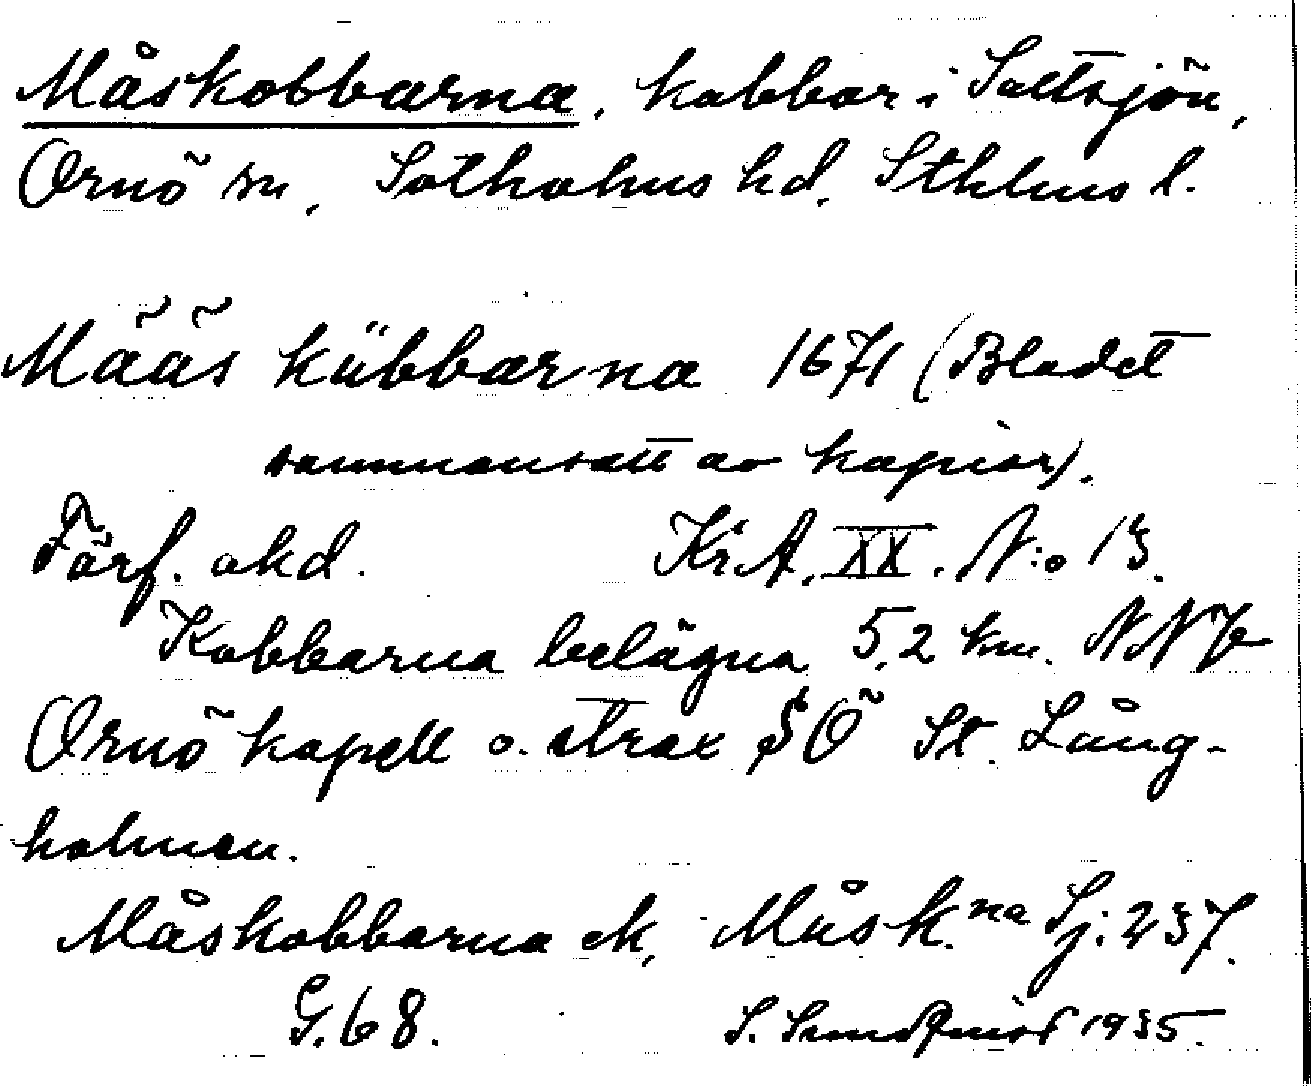 Måskobbarna, kobbar i Saltsjön,
Ornö sn, Sotholms hd, Sthlms l.
Määs kübbarna 1671 (Bladet
sammansatt av kopior).
Förf. okd. Kr.A. XX. N:o 13.
Kobbarna belägna 5,2 km. NNV
Ornö kapell o. strax SÖ St. Lång-
holmen.
Måskobbarna ek, Måsk.na Sj. 237.
G. 68. S. Sundqvist 1935.